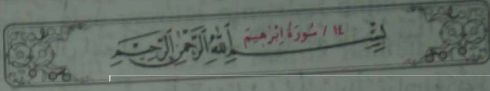 ١٤ / سُورَةُ إِبْرَهِيمَ
بِسْمِ ٱللَّهِ ٱلرَّحْمَٰنِ ٱلرَّحِيمِ